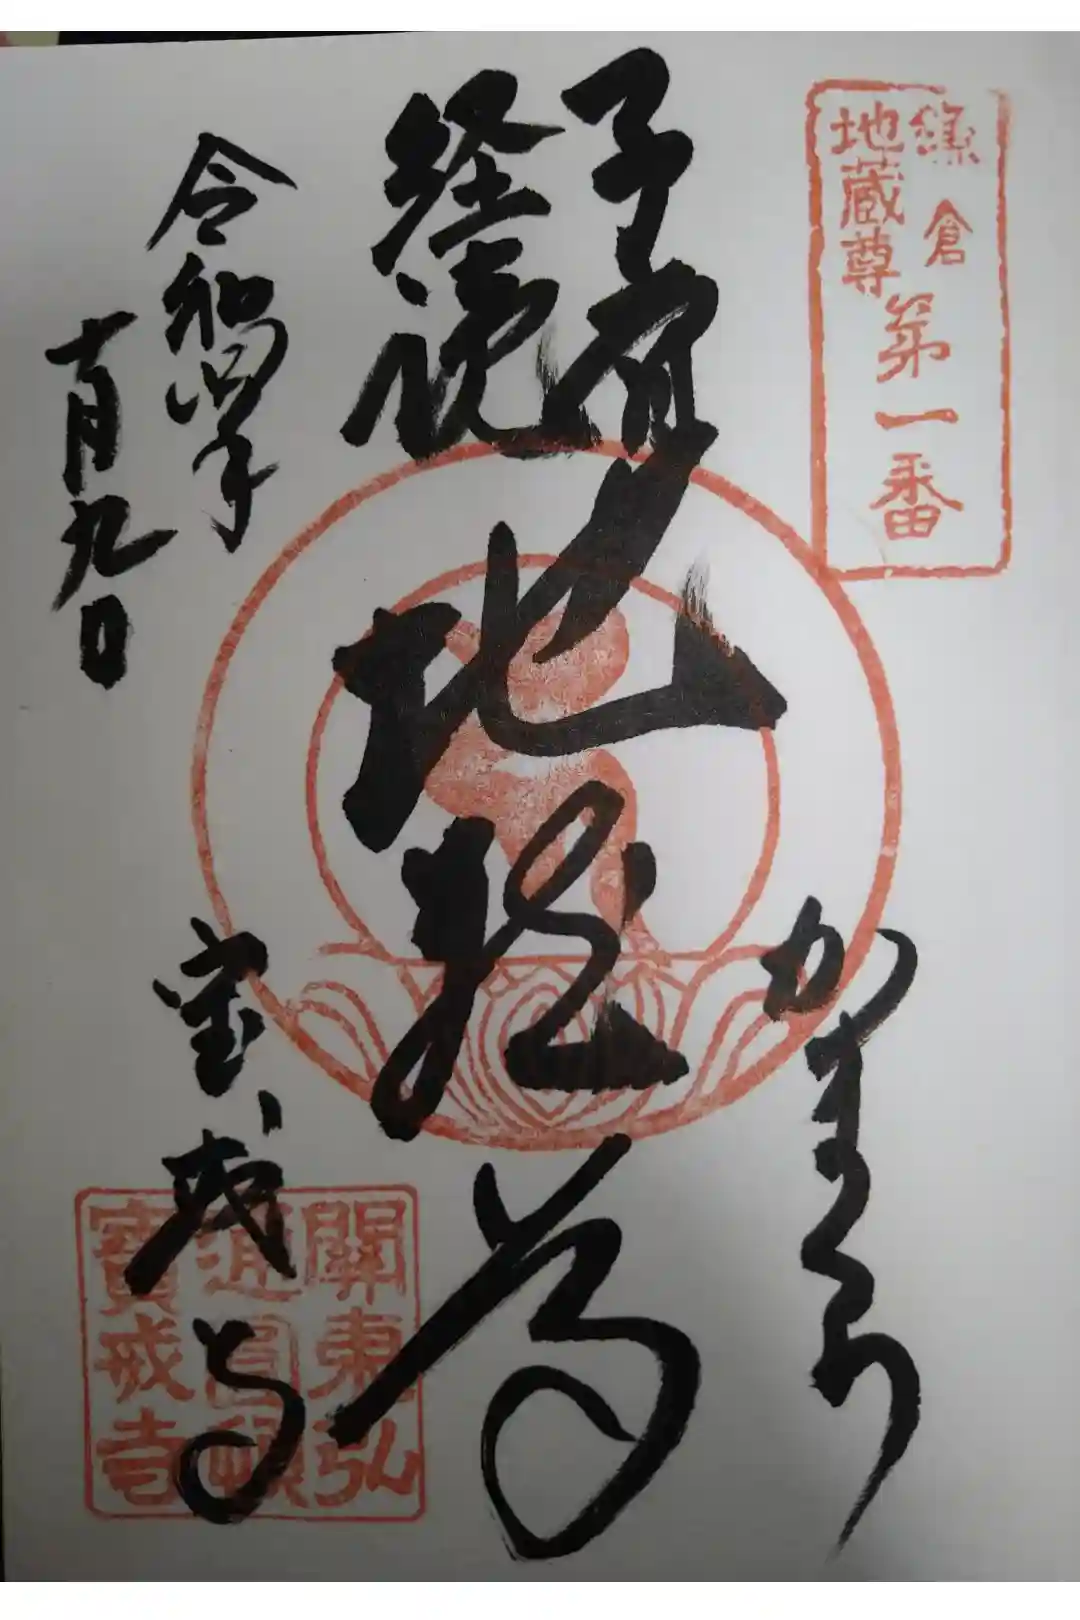 鎌倉
地蔵尊
第一番
子育
経読
地蔵尊
かまくら
令和四年
十月九日
宝戒寺
關東弘
通圓頓
寳戒寺